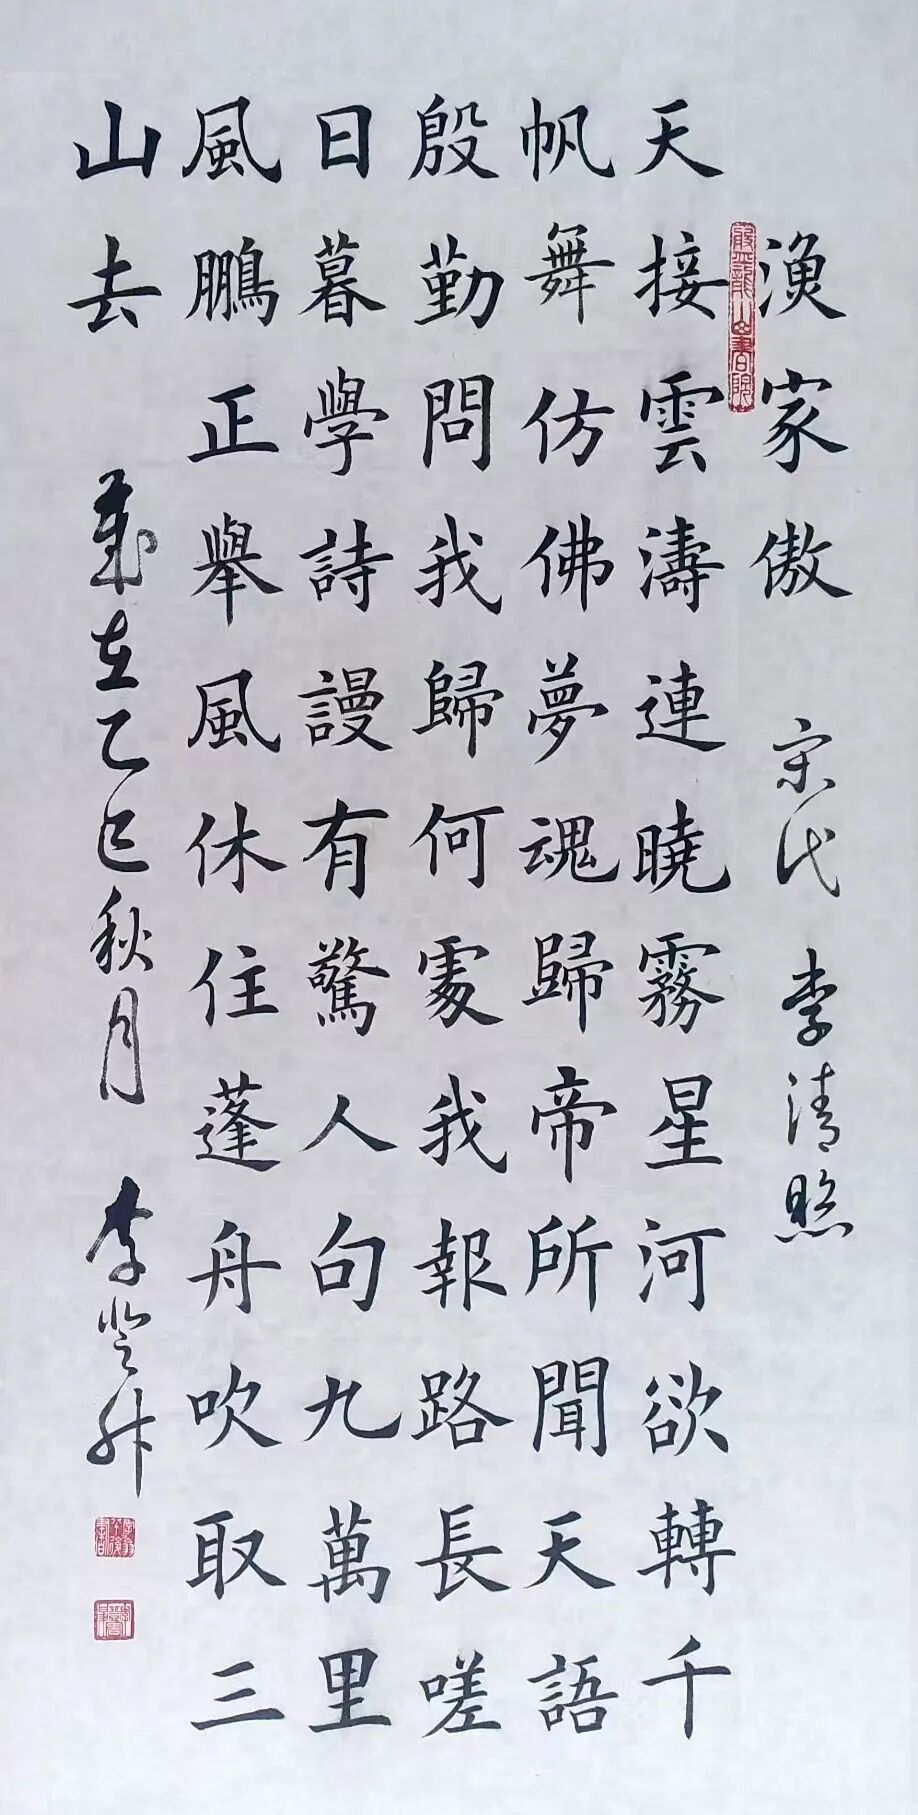 漁家傲 宋代 李清照
天接雲濤連曉霧星河欲轉千
帆舞仿佛夢魂歸帝所聞天語
殷勤問我歸何處我報路長嗟
日暮學詩謾有驚人句九萬里
風鵬正舉風休住蓬舟吹取三
山去 歲在乙巳秋月 李登升